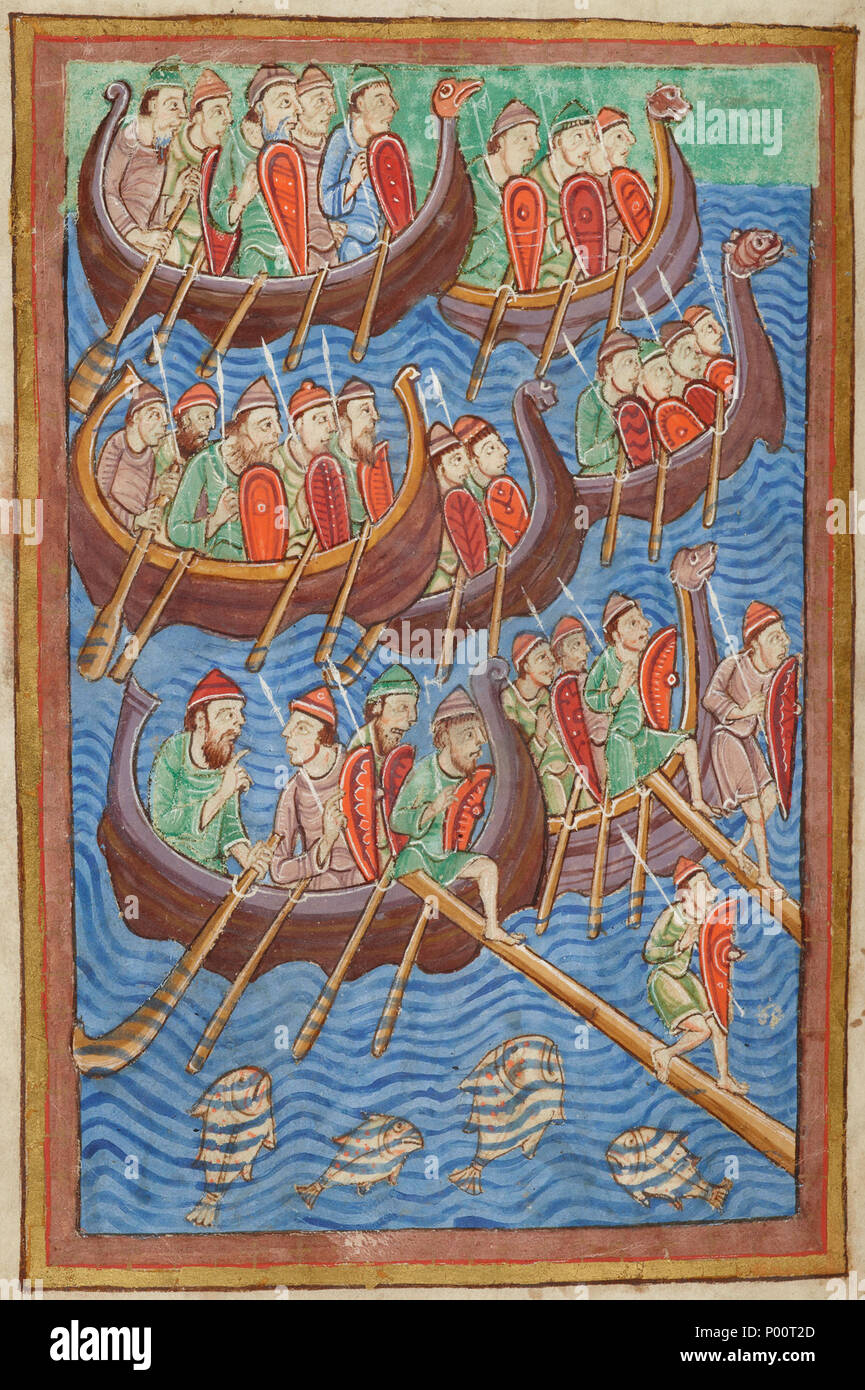 alamy
a
a
a
alamy
Image ID: P00T2D
www.alamy.com